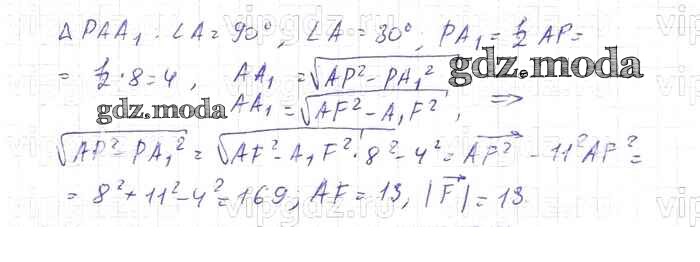 Δ PAA₁. ∠A = 90°, ∠A = 30°, PA₁ = 1/2 AP =
= 1/2 · 8 = 4, AA₁ = √AP² − PA₁²
gdz.moda
gdz.moda
AA₁ = √AF² − A₁F², ⇒
√AP² − PA₁² = √AF² − A₁F² · 8² − 4² = AF² − 11² AF² =
= 8² + 11² − 4² = 169; AF = 13, |F| = 13